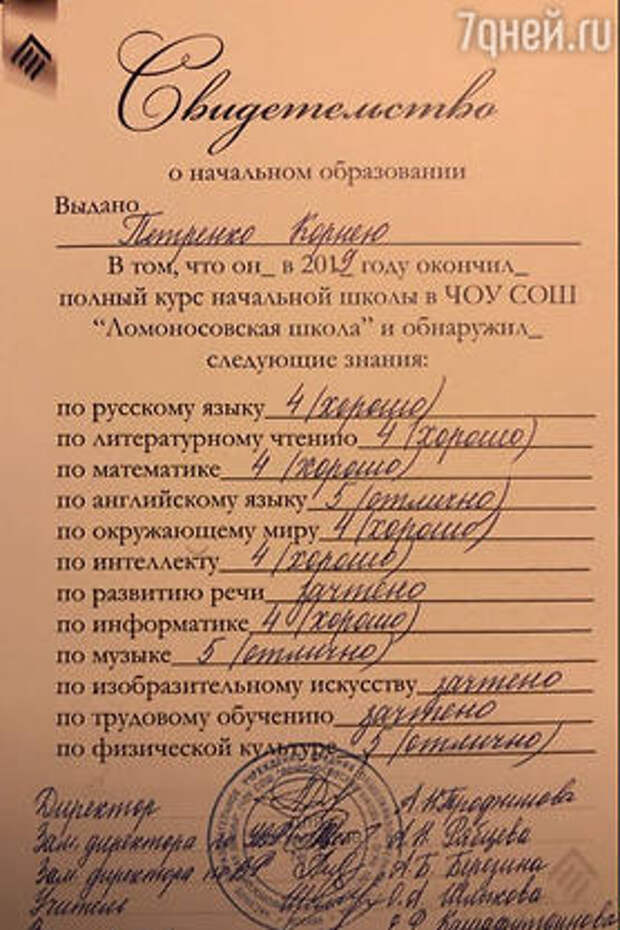 7дней.ru
Свидетельство
о начальном образовании
Выдано
Петренко Корнею
В том, что он_ в 2019 году окончил_
полный курс начальной школы в ЧОУ СОШ
“Ломоносовская школа” и обнаружил_
следующие знания:
по русскому языку 4 (хорошо)
по литературному чтению 4 (хорошо)
по математике 4 (хорошо)
по английскому языку 5 (отлично)
по окружающему миру 4 (хорошо)
по интеллекту 4 (хорошо)
по развитию речи зачтено
по информатике 4 (хорошо)
по музыке 5 (отлично)
по изобразительному искусству зачтено
по трудовому обучению зачтено
по физической культуре 5 (отлично)
Директор А.И. Трофимова
Зам. директора по А.Н. Рябцева
Зам. директора по ВР А.Б. Березина
Учитель О.А. Шлыкова